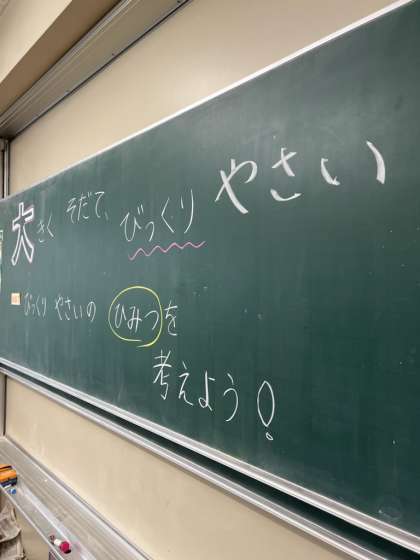 大きくそだて、びっくりやさい
びっくりやさいのひみつを
考えよう!